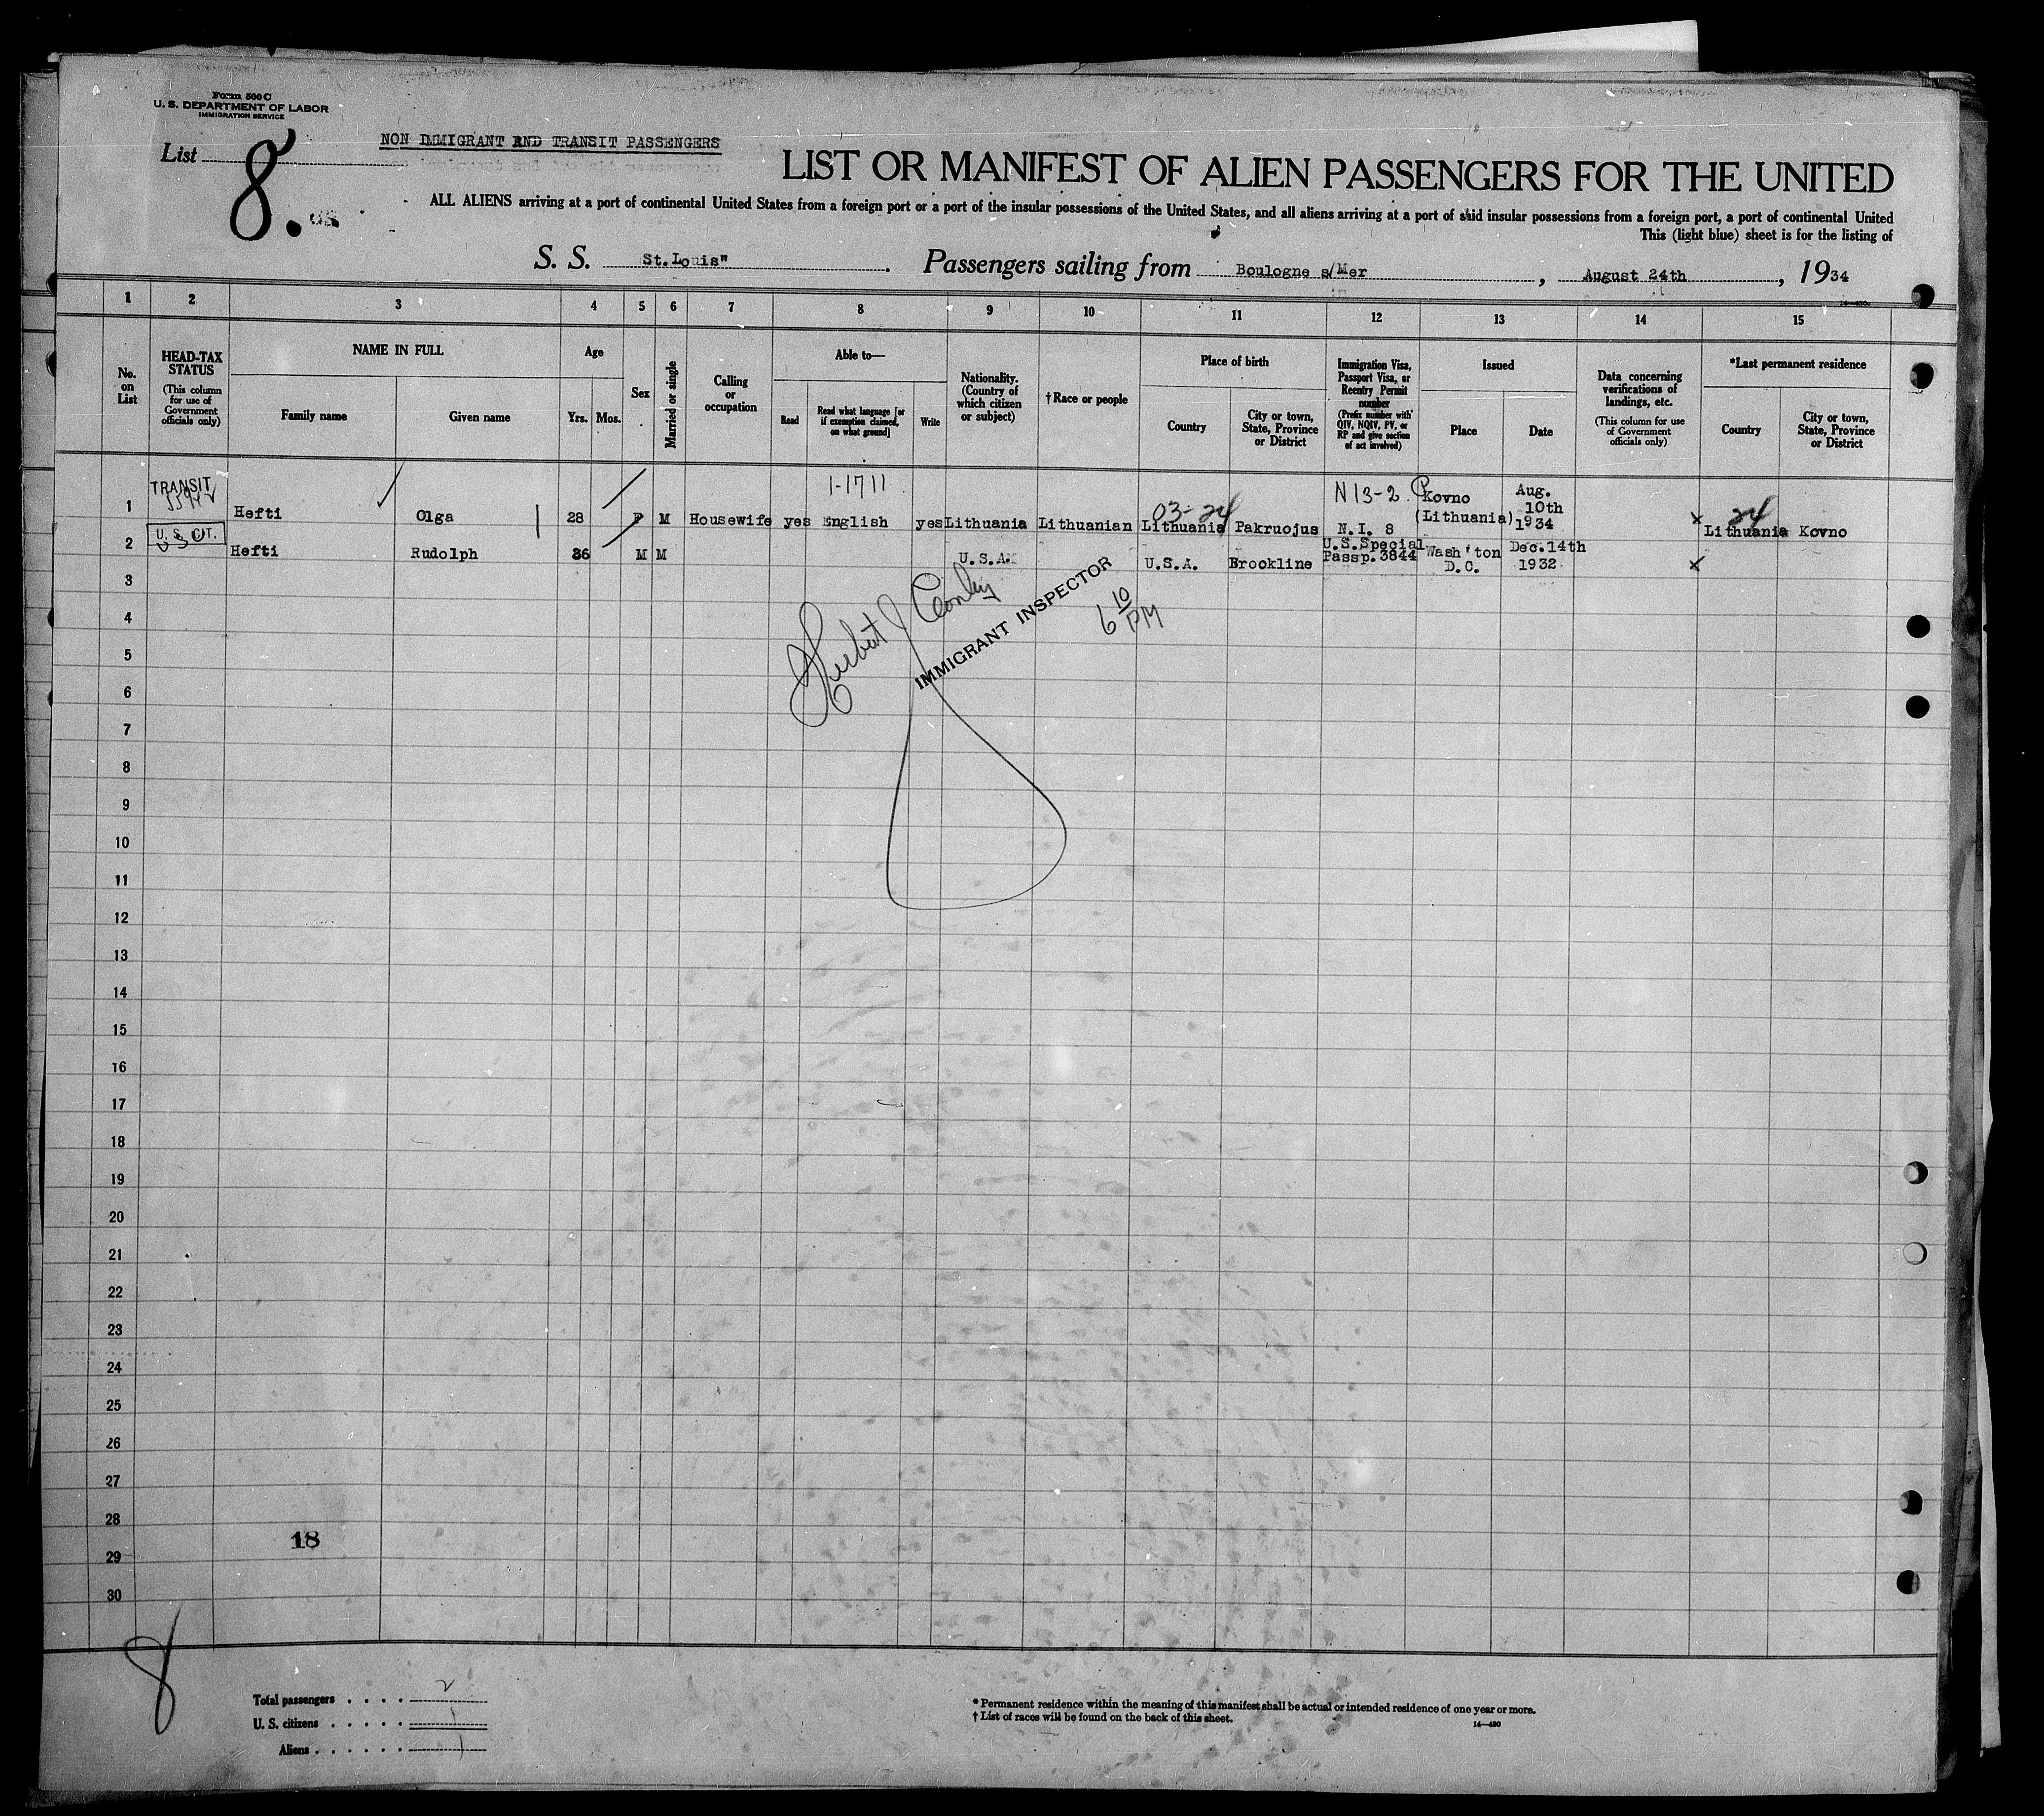 Form 500 C
U. S. DEPARTMENT OF LABOR
IMMIGRATION SERVICE
List 8.
NON IMMIGRANT AND TRANSIT PASSENGERS
LIST OR MANIFEST OF ALIEN PASSENGERS FOR THE UNITED
ALL ALIENS arriving at a port of continental United States from a foreign port or a port of the insular possessions of the United States, and all aliens arriving at a port of said insular possessions from a foreign port, a port of continental United
This (light blue) sheet is for the listing of
S. S. St.Louis" . Passengers sailing from Boulogne s/Mer , August 24th , 1934
1 2 3 4 5 6 7 8 9 10 11 12 13 14 15
No. on List
HEAD-TAX STATUS
(This column for use of Government officials only)
NAME IN FULL
Family name
Given name
Age
Yrs. Mos.
Sex
Married or single
Calling or occupation
Able to—
Read
Read what language [or if exemption claimed, on what ground]
Write
Nationality. (Country of which citizen or subject)
† Race or people
Place of birth
Country
City or town, State, Province or District
Immigration Visa, Passport Visa, or Reentry Permit number
(Prefix number with QIV, NQIV, PV, or RP and give section of act involved)
Issued
Place
Date
Data concerning verifications of landings, etc.
(This column for use of Government officials only)
*Last permanent residence
Country
City or town, State, Province or District
TRANSIT
1-1711
N13-2
Kovno (Lithuania)
Aug. 10th 1934
03-24
24
1 Hefti Olga 28 F M Housewife yes English yes Lithuania Lithuanian Lithuania Pakruojus N.I. 8 x Lithuania Kovno
U. S. CIT.
2 Hefti Rudolph 36 M M U.S.A. U.S.A. Brookline U.S.Special Passp. 3844 Wash'ton D.C. Dec.14th 1932 x
3
4
5
6
7
8
9
10
11
12
13
14
15
16
17
18
19
20
21
22
23
24
25
26
27
28
29
30
IMMIGRANT INSPECTOR
6 10 PM
18
8
Total passengers . . . . 2
U. S. citizens . . . . . 1
Aliens . . . . . . 1
* Permanent residence within the meaning of this manifest shall be actual or intended residence of one year or more.
† List of races will be found on the back of this sheet.
14—480